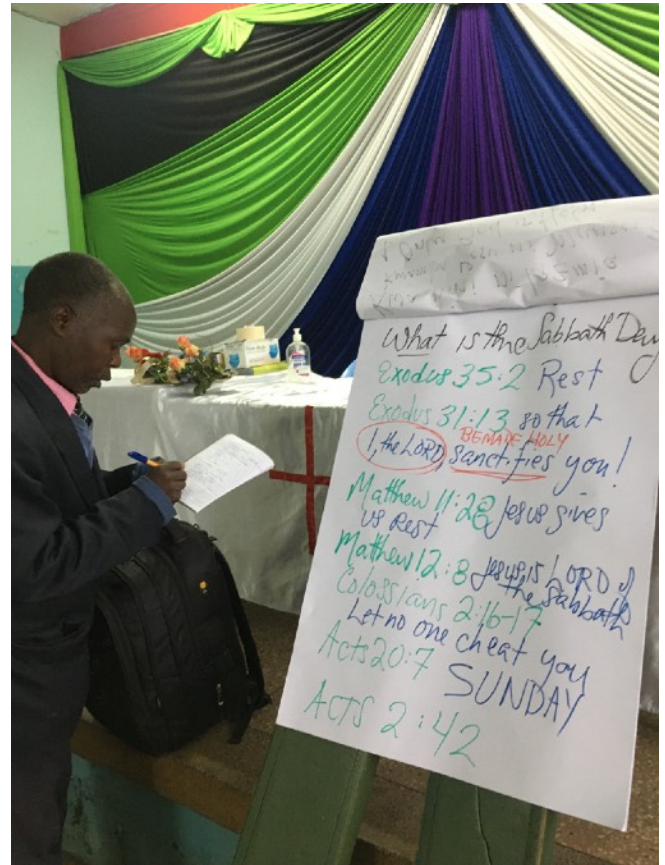 What is the Sabbath Day
Exodus 35:2 Rest
Exodus 31:13 so that
BE MADE HOLY
I, the LORD, sanctifies you!
Matthew 11:28 Jesus gives
us Rest
Matthew 12:8 Jesus is LORD of
the Sabbath
Colossians 2:16-17
Let no one cheat you
Acts 20:7
SUNDAY
ACTS 2:42